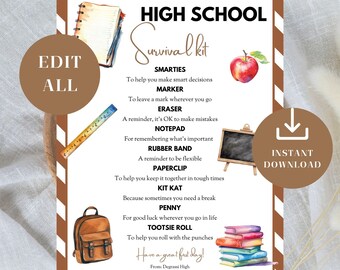 HIGH SCHOOL
Survival kit
EDIT
ALL
SMARTIES
To help you make smart decisions
MARKER
To leave a mark wherever you go
ERASER
A reminder, it's OK to make mistakes
NOTEPAD
For remembering what's important
RUBBER BAND
A reminder to be flexible
PAPERCLIP
To help you keep it together in tough times
KIT KAT
Because sometimes you need a break
PENNY
For good luck wherever you go in life
TOOTSIE ROLL
To help you roll with the punches
Have a great first day!
From: Degrassi High
INSTANT
DOWNLOAD